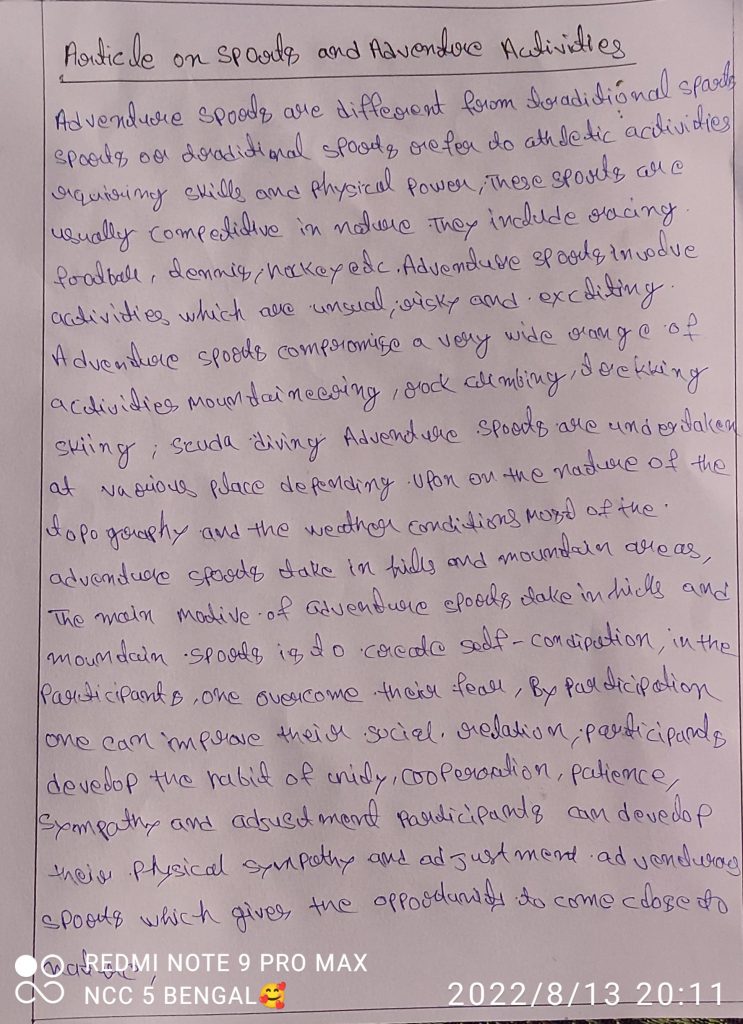 Article on Sports and Adventure Activities
Adventure sports are different from traditional sports
sports or traditional sports refer to athletic activities
requiring skills and physical power, These sports are
usually competitive in nature They include racing.
football, tennis, hockey etc. Adventure sports involve
activities which are unsual, risky and exciting.
Adventure sports compromise a very wide range of
activities mountaineering, rock climbing, trekking
skiing, scuda diving Adventure sports are undertaken
at various place depending upon on the nature of the
topography and the weather conditions most of the.
adventure sports take in hills and mountain areas,
The main motive of adventure sports take in hills and
mountain sports is to create self-condipution, in the
Participants, one overcome their fear, By participation
one can improve their social. relation, participants
develop the habit of unity, cooperation, patience,
Sympathy and adjustment Participants can develop
their Physical sympathy and adjustment adventures
sports which gives the opportunity to come close to
nature,
REDMI NOTE 9 PRO MAX
NCC 5 BENGAL🥰
2022/8/13 20:11